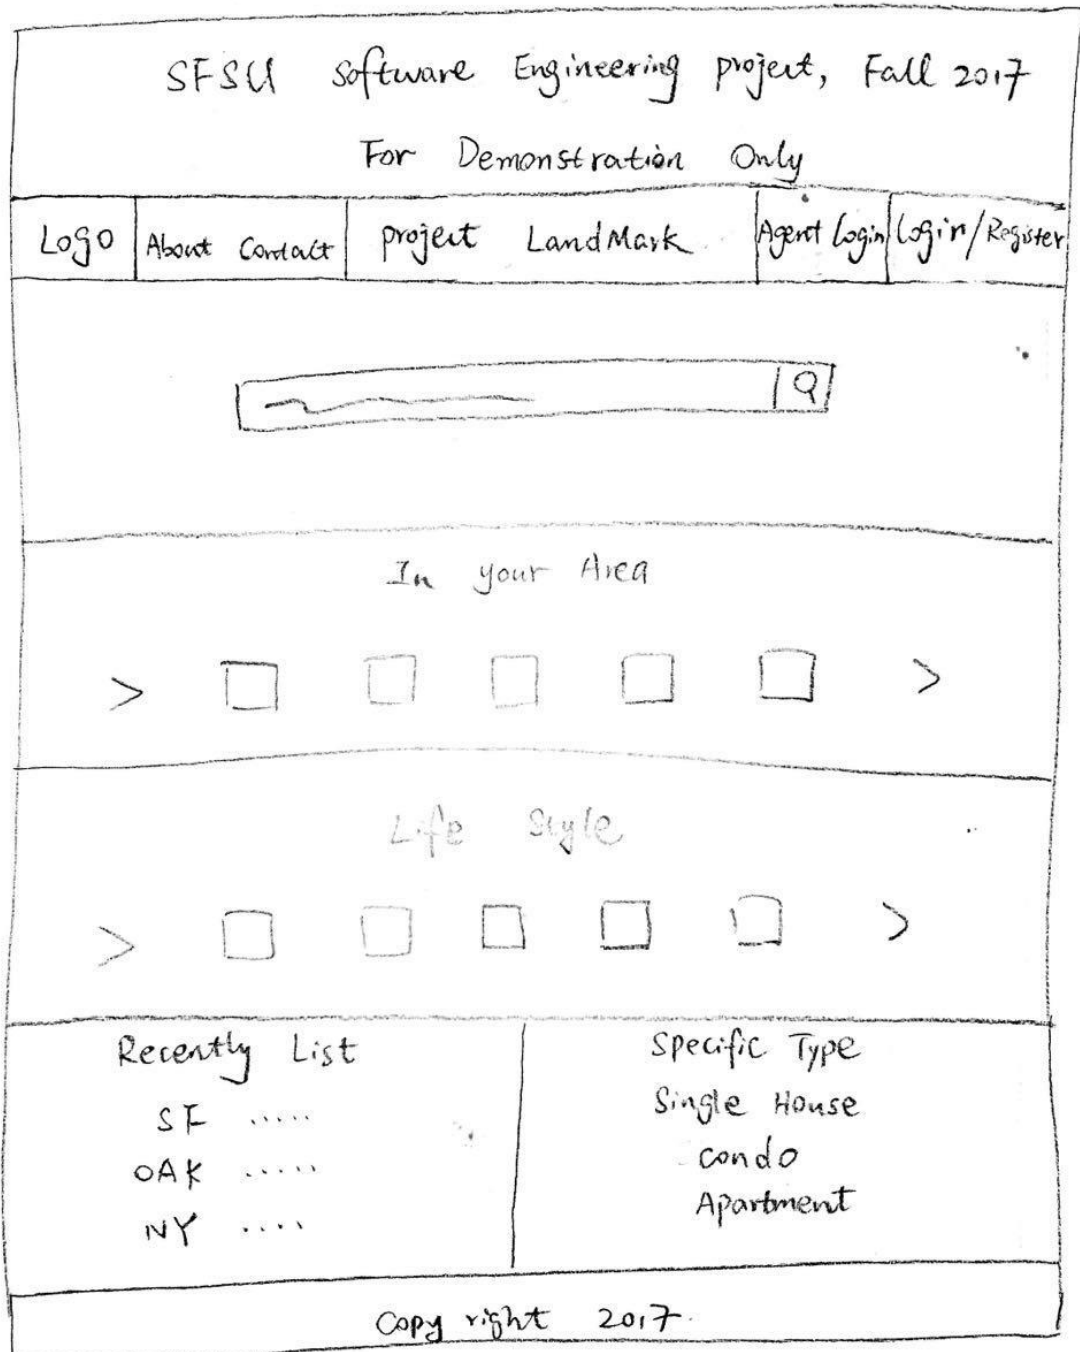 SFSU Software Engineering project, Fall 2017
For Demonstration Only
Logo About Contact project LandMark Agent Login Login/Register
In your Area
> >
Life Style
> >
Recently List
SF .....
OAK .....
NY ....
Specific Type
Single House
condo
Apartment
Copy right 2017.